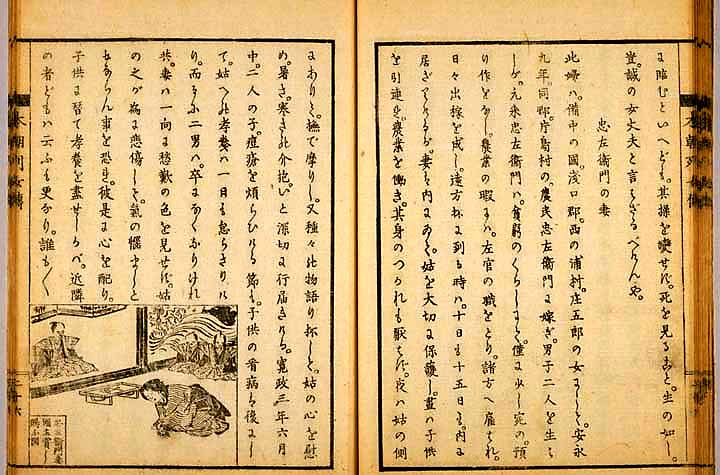 に臨むといへども。其操を変ぜず。死を見ること。生の如し。
豈誠の女丈夫と言ざるべけんや。
忠左衛門の妻
此婦ハ。備中の國浅口郡。西の浦村。庄五郎の女にして。安永
九年。同郡。片島村の。農民忠左衛門に嫁ぎ。男子二人を生
しが。元来忠左衛門ハ。貧窮のくらしにて。僅に少し宛の。預
り作をなし。農業の暇にハ。左官の職をとり。諸方へ雇れ。
日々出稼を成し。遠方抔に到る時ハ。十日も十五日も。内に
居ざりけるが。妻ハ内にありて。姑を大切に保護し。昼ハ子供
を引連。農業を働き。其身のつかれも厭はず。夜ハ姑の側
にありて。撫で摩りし。又種々の物語り抔して。姑の心を慰
め。暑さ。寒さの介抱ひと深切に行届きける。寛政三年六月
中。二人の子。痘瘡を煩らひける節も。子供の看病を後にし
て。姑への孝養ハ一日も怠らざりけ
り。而るに二男ハ。卒になくなりけれ
共。妻ハ一向に愁歎の色を見せず。姑
の之が為に悲傷して。氣の
なあらん事を恐れ。彼是に心を配り。
子供に替て孝養を盡せしかバ。近隣
の者どもハ云ふも更なり。誰も〱
本朝列女傳
忠左衛門妻
國主賞し
賜ふ図